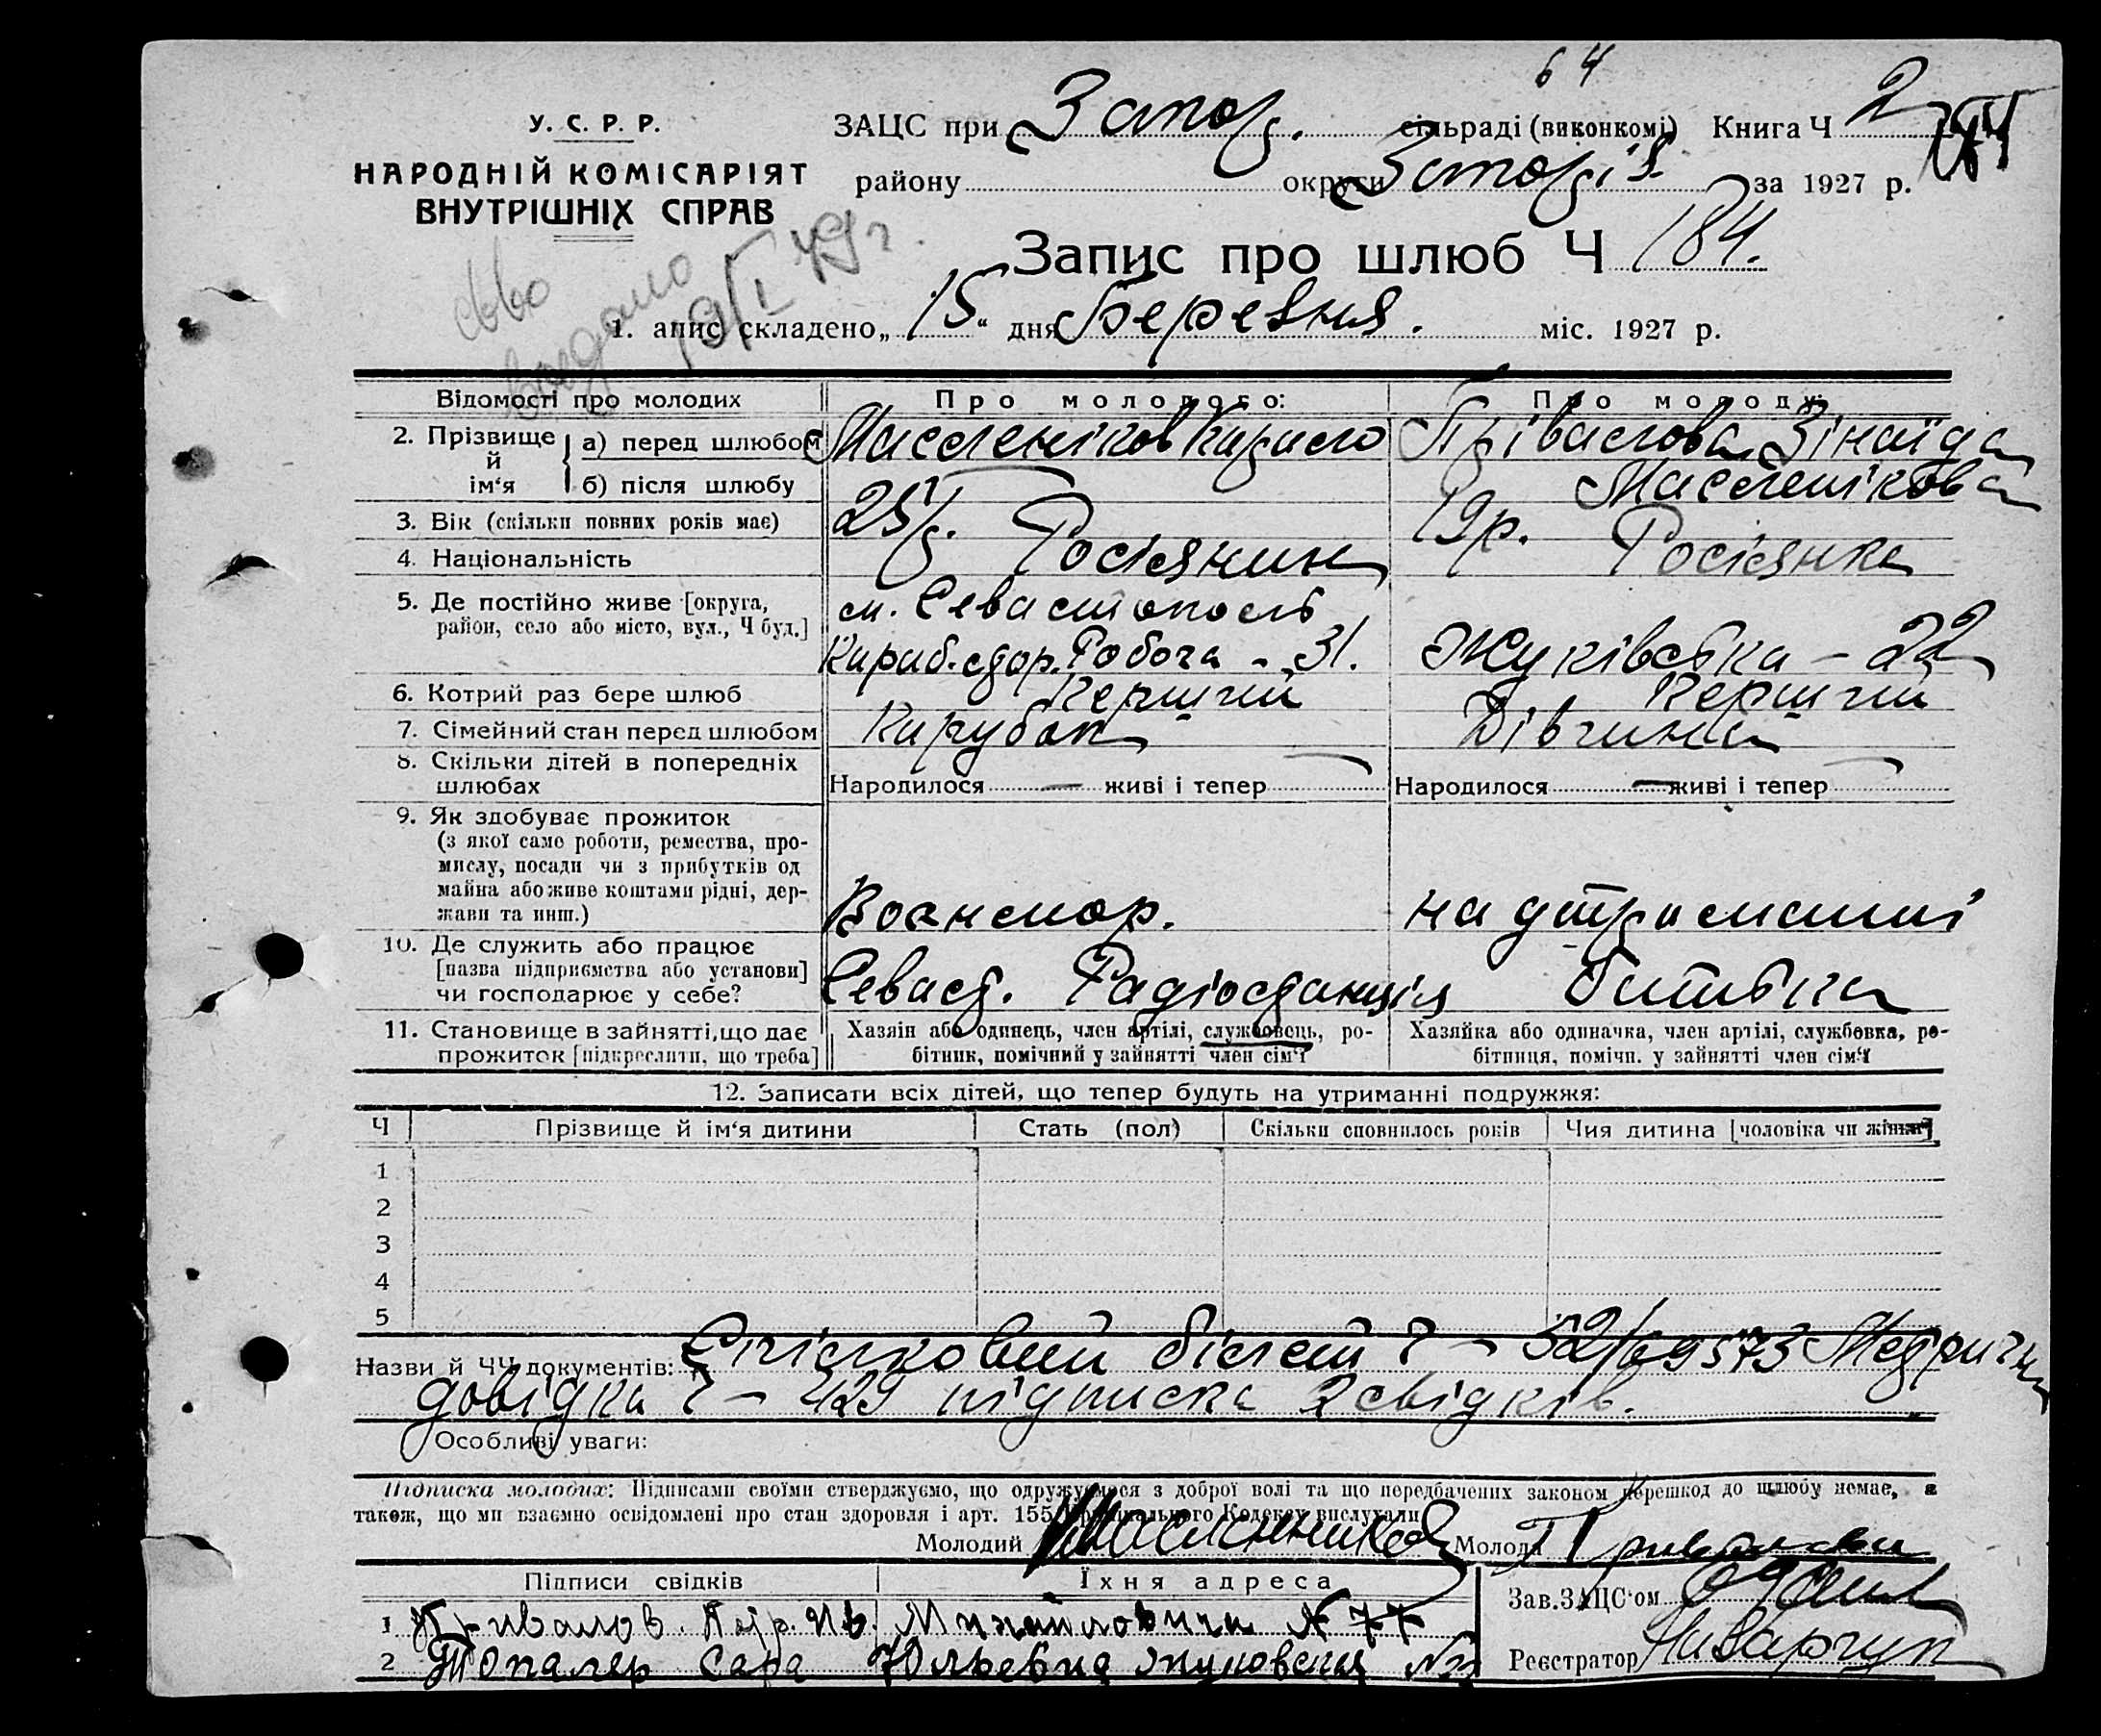 64
У. С. Р. Р.
НАРОДНІЙ КОМІСАРІЯТ
ВНУТРІШНІХ СПРАВ
ЗАЦС при Запоріз. сільраді (виконкомі) Книга Ч 2
району округи Запоріз. за 1927 р.
19/I 49 г.
Запис про шлюб Ч 184.
1. апис складено „ 15 “ дня Березня. міс. 1927 р.
Відомості про молодих Про молодого: Про молоду:
2. Прізвище й ім‘я а) перед шлюбом Маслєніков Кирило Прівалова Зінаїда
б) після шлюбу Маслєнікова
3. Вік (скільки повних років має) 25 р. 19 р.
4. Національність Росіянин Росіянка
5. Де постійно живе [округа, район, село або місто, вул., Ч буд.] м. Севастополь
Кораб. стор. Робоча - 31. Жуківська - 22
6. Котрий раз бере шлюб Перший Перший
7. Сімейний стан перед шлюбом Парубок Дівчина
8. Скільки дітей в попередніх шлюбах Народилося — живі і тепер — Народилося — живі і тепер —
9. Як здобуває прожиток
(з якої саме роботи, ремества, про-
мислу, посади чи з прибутків од
майна або живе коштами рідні, дер-
жави та инш.) Военмор. на утриманні
10. Де служить або працює
[назва підприємства або установи]
чи господарює у себе? Севаст. Радіостанція батька
11. Становище в зайнятті, що дає
прожиток [підкреслити, що треба]
Хазяін або одинець, член артілі, службовець, ро-
бітник, помічний у зайнятті член сім‘ї
Хазяйка або одиначка, член артілі, службовка, ро-
бітниця, помічн. у зайнятті член сім‘ї
12. Записати всіх дітей, що тепер будуть на утриманні подружжя:
Ч Прізвище й ім‘я дитини Стать (пол) Скільки сповнилось років Чия дитина [чоловіка чи жінки]
1
2
3
4
5
Назви й ЧЧ документів: білєт Ч - 52/69573 Метрична
довідка Ч - 429 підписка 2 свідків.
Особливі уваги:
Підписка молодих: Підписами своїми стверджуємо, що одружуємося з доброї волі та що передбачених законом перешкод до шлюбу немає, а
також, що ми взаємно освідомлені про стан здоровля і арт. 155 Крімінального Кодексу вислухали
Молодий Масленников Молода Привалова
Підписи свідків Їхня адреса Зав. ЗАЦС‘ом
1 Привалов. Петр. Ив. Михайловича № 77
2 Топалер Сара Юльевна Жуковская № Реєстратор